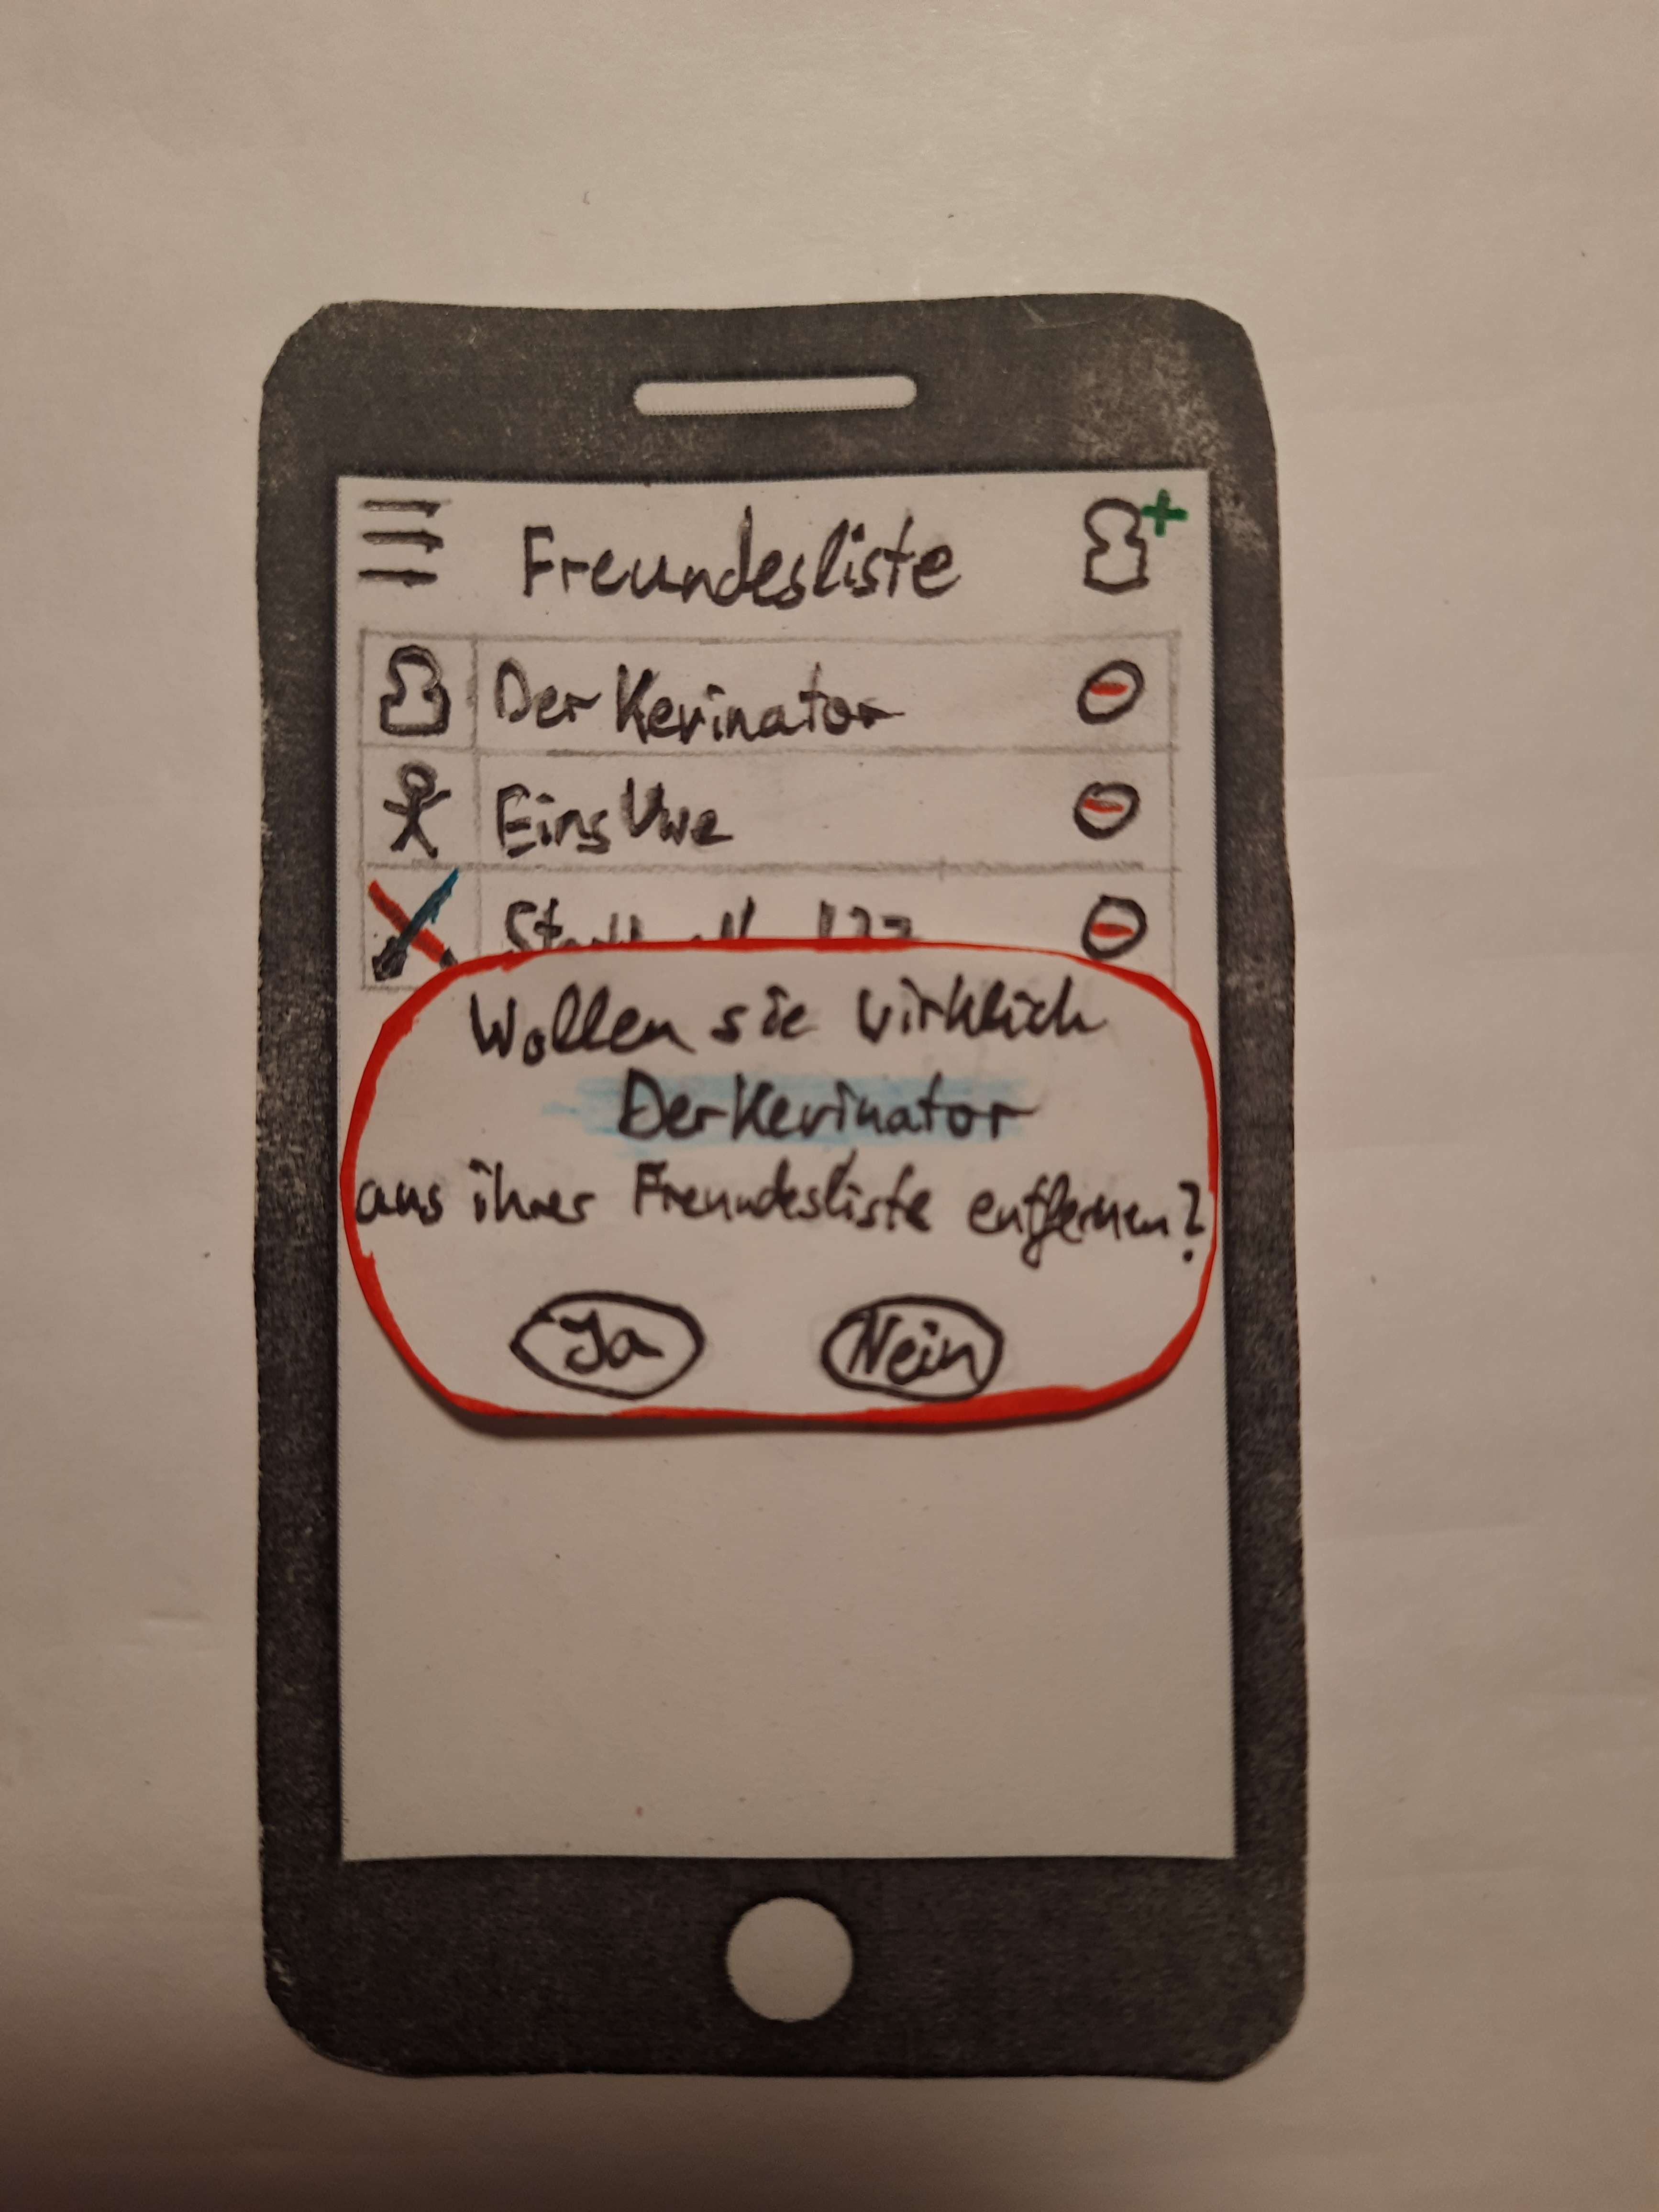 Freundesliste
DerKevinator
EinsUwe
Wollen sie wirklich
DerKevinator
aus ihrer Freundesliste entfernen?
Ja
Nein